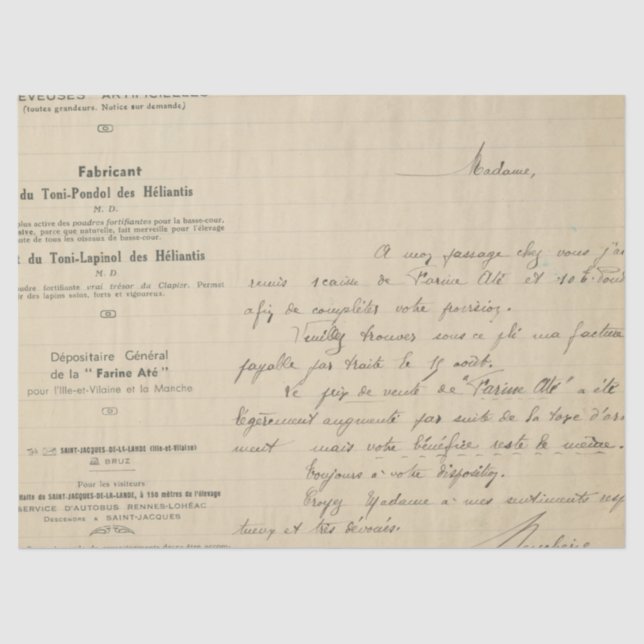 EVEUSES ARTIFICIELLES
(toutes grandeurs. Notice sur demande)
Fabricant
du Toni-Pondol des Héliantis
M. D.
plus active des poudres fortifiantes pour la basse-cour,
sive, parce que naturelle, fait merveille pour l'élevage
ute de tous les oiseaux de basse-cour.
t du Toni-Lapinol des Héliantis
M. D.
oudre fortifiante vrai trésor du Clapier. Permet
ir des lapins sains, forts et vigoureux.
Dépositaire Général
de la " Farine Até "
pour l'Ille-et-Vilaine et la Manche
SAINT-JACQUES-DE-LA-LANDE (Ille-et-Vilaine)
BRUZ
Pour les visiteurs
Halte du SAINT-JACQUES-DE-LA-LANDE, à 150 mètres de l'élevage
SERVICE D'AUTOBUS RENNES-LOHÉAC
DESCENDRE A SAINT-JACQUES
Madame,
A mon passage chez vous j'ai
remis 1 caisse de Farine Até et 10 b. Pond
afin de compléter votre provision.
Veuillez trouver sous ce pli ma facture
payable par traite le 15 août.
Le prix de vente de "Farine Até" a été
légèrement augmenté par suite de la taxe d'ar
ment mais votre bénéfice reste le même.
Toujours à votre disposition.
Croyez Madame à mes sentiments resp
tueux et très dévoués.